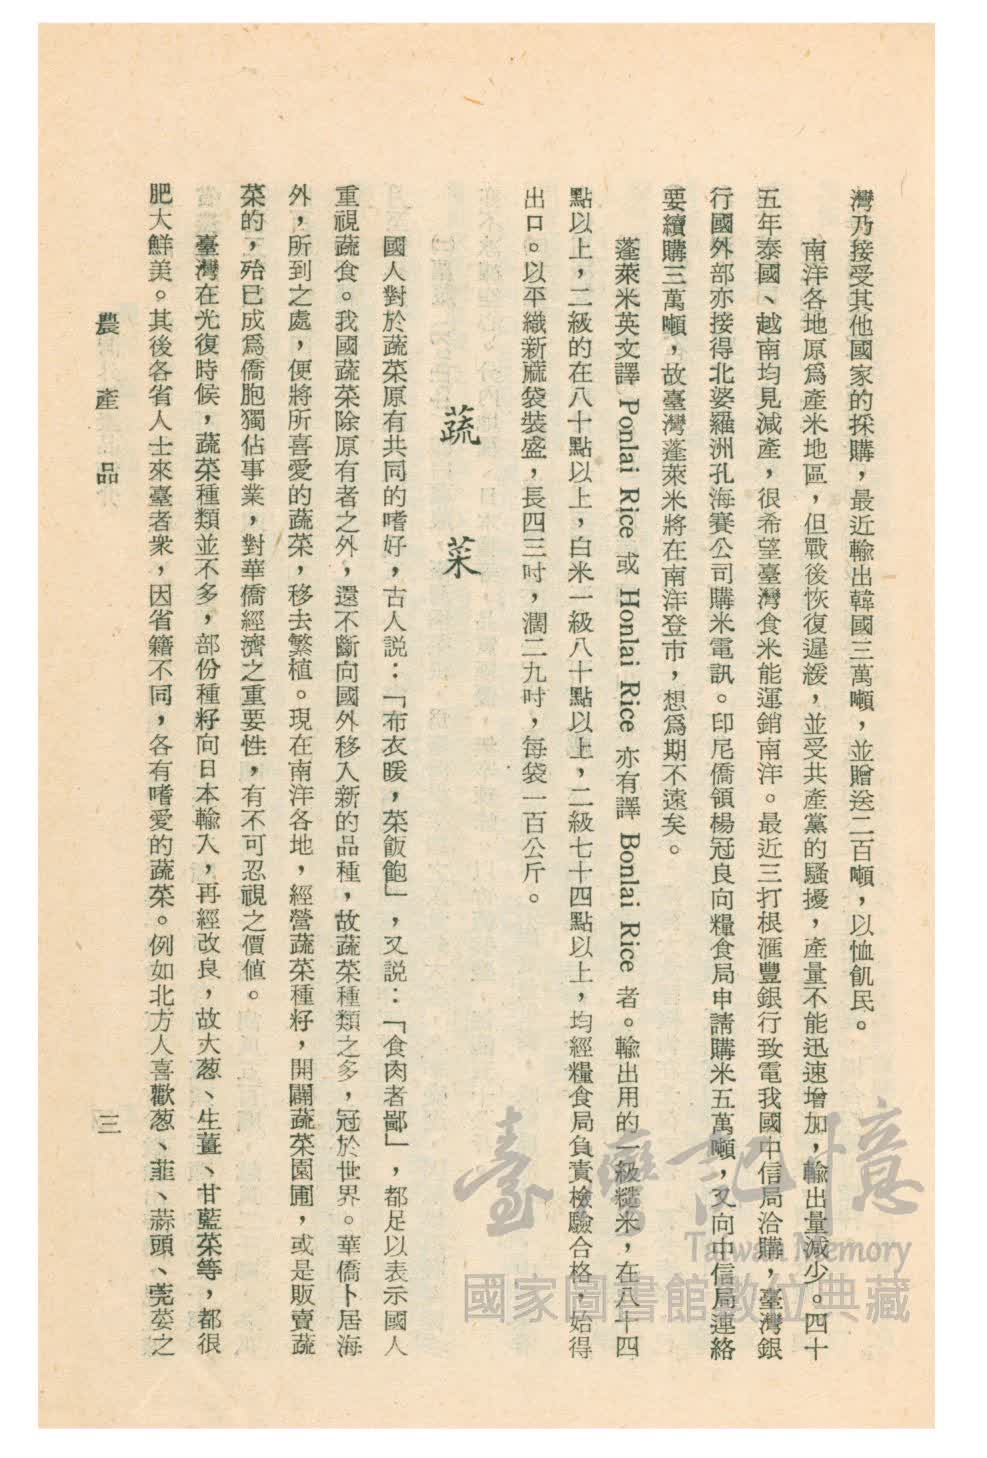 灣乃接受其他國家的採購，最近輸出韓國三萬噸，並贈送二百噸，以恤飢民。
南洋各地原爲產米地區，但戰後恢復遲緩，並受共產黨的騷擾，產量不能迅速增加，輸出量減少。四十
五年泰國、越南均見減產，很希望臺灣食米能運銷南洋。最近三打根滙豐銀行致電我國中信局洽購，臺灣銀
行國外部亦接得北婆羅洲孔海賽公司購米電訊。印尼僑領楊冠良向糧食局申請購米五萬噸，又向中信局連絡
要續購三萬噸，故臺灣蓬萊米將在南洋登市，想爲期不遠矣。
蓬萊米英文譯 Ponlai Rice 或 Honlai Rice 亦有譯 Bonlai Rice 者。輸出用的一級糙米，在八十四
點以上，二級的在八十點以上，白米一級八十點以上，二級七十四點以上，均經糧食局負責檢驗合格，始得
出口。以平織新蔴袋裝盛，長四三吋，濶二九吋，每袋一百公斤。
蔬菜
國人對於蔬菜原有共同的嗜好，古人説：「布衣暖，菜飯飽」，又説：「食肉者鄙」，都足以表示國人
重視蔬食。我國蔬菜除原有者之外，還不斷向國外移入新的品種，故蔬菜種類之多，冠於世界。華僑卜居海
外，所到之處，便將所喜愛的蔬菜，移去繁植。現在南洋各地，經營蔬菜種籽，開闢蔬菜園圃，或是販賣蔬
菜的，殆已成爲僑胞獨佔事業，對華僑經濟之重要性，有不可忍視之價値。
臺灣在光復時候，蔬菜種類並不多，部份種籽向日本輸入，再經改良，故大葱、生薑、甘藍菜等，都很
肥大鮮美。其後各省人士來臺者衆，因省籍不同，各有嗜愛的蔬菜。例如北方人喜歡葱、韮、蒜頭、莞荽之
農產品
三
臺灣記憶
Taiwan Memory
國家圖書館數位典藏